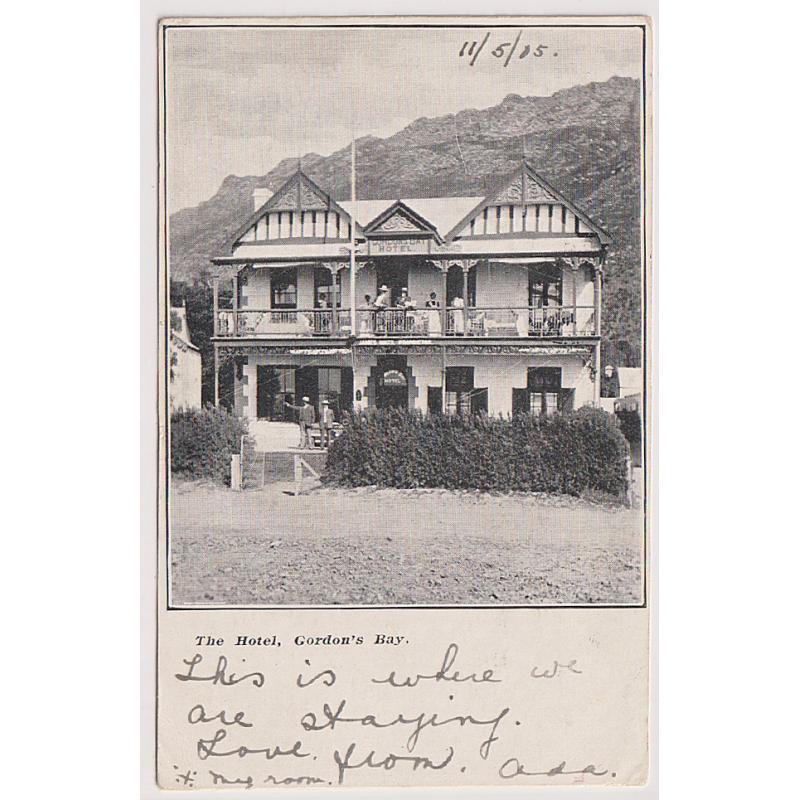 11/5/05.
GORDON'S BAY
HOTEL
HOTEL
The Hotel, Gordon's Bay.
This is where we
are staying.
Love. from. Ada.
my room.